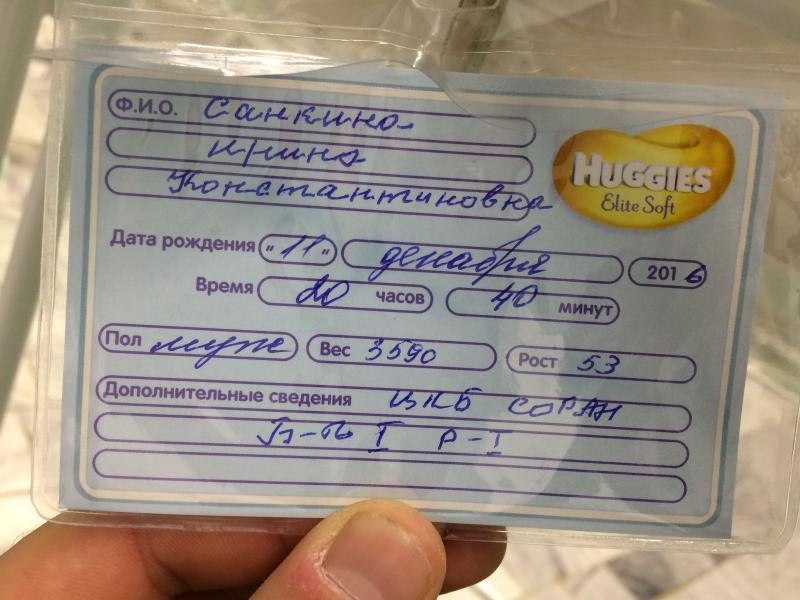 Ф.И.О. Санкина
Ирина
Константиновна
HUGGIES
Elite Soft
Дата рождения "11" декабря 2016
Время 20 часов 40 минут
Пол муж Вес 3590 Рост 53
Дополнительные сведения ЦКБ СОРАН
I Р-I